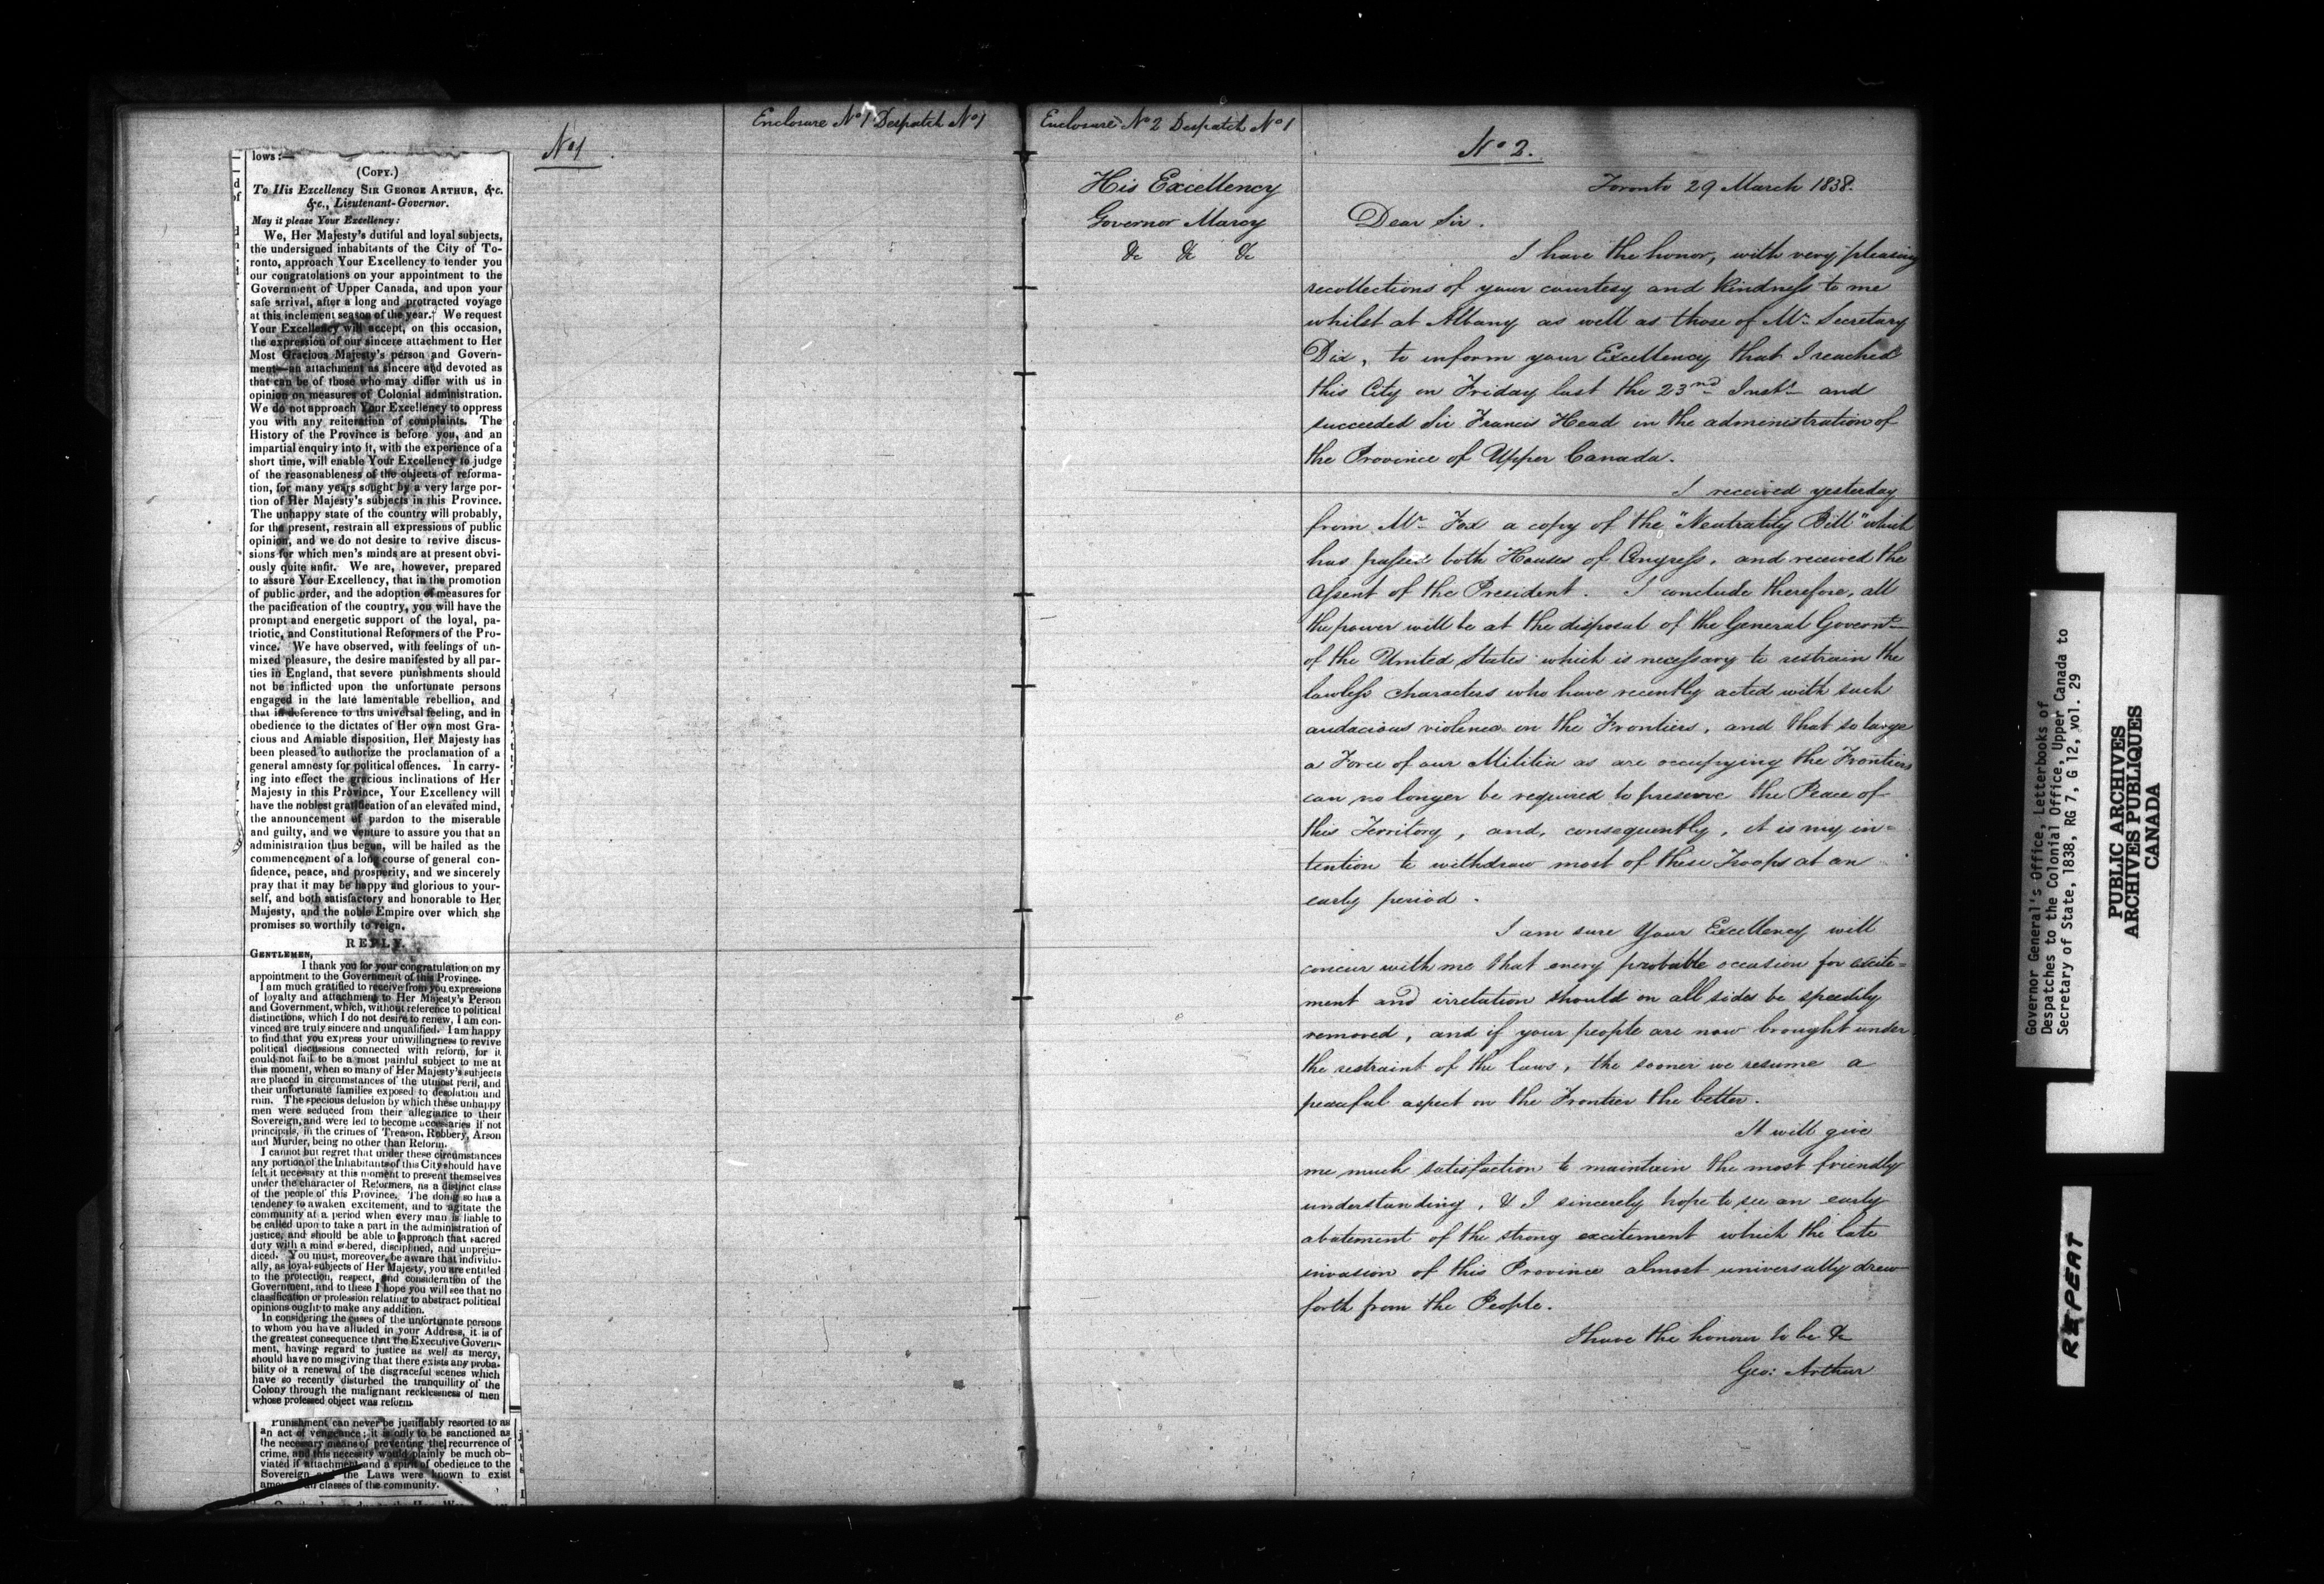 Enclosure No 1 Despatch No 1
No 1
lows:—
(COPY.)
To His Excellency SIR GEORGE ARTHUR, &c.
&c., Lieutenant-Governor.
May it please Your Excellency:
We, Her Majesty's dutiful and loyal subjects,
the undersigned inhabitants of the City of To-
ronto, approach Your Excellency to tender you
our congratulations on your appointment to the
Government of Upper Canada, and upon your
safe arrival, after a long and protracted voyage
at this inclement season of the year. We request
Your Excellency will accept, on this occasion,
the expression of our sincere attachment to Her
Most Gracious Majesty's person and Govern-
ment—an attachment as sincere and devoted as
that can be of those who may differ with us in
opinion on measures of Colonial administration.
We do not approach Your Excellency to oppress
you with any reiteration of complaints. The
History of the Province is before you, and an
impartial enquiry into it, with the experience of a
short time, will enable Your Excellency to judge
of the reasonableness of the objects of reforma-
tion, for many years sought by a very large por-
tion of Her Majesty's subjects in this Province.
The unhappy state of the country will probably,
for the present, restrain all expressions of public
opinion, and we do not desire to revive discus-
sions for which men's minds are at present obvi-
ously quite unfit. We are, however, prepared
to assure Your Excellency, that in the promotion
of public order, and the adoption of measures for
the pacification of the country, you will have the
prompt and energetic support of the loyal, pa-
triotic, and Constitutional Reformers of the Pro-
vince. We have observed, with feelings of un-
mixed pleasure, the desire manifested by all par-
ties in England, that severe punishments should
not be inflicted upon the unfortunate persons
engaged in the late lamentable rebellion, and
that in deference to this universal feeling, and in
obedience to the dictates of Her own most Gra-
cious and Amiable disposition, Her Majesty has
been pleased to authorize the proclamation of a
general amnesty for political offences. In carry-
ing into effect the gracious inclinations of Her
Majesty in this Province, Your Excellency will
have the noblest gratification of an elevated mind,
the announcement of pardon to the miserable
and guilty, and we venture to assure you that an
administration thus begun, will be hailed as the
commencement of a long course of general con-
fidence, peace, and prosperity, and we sincerely
pray that it may be happy and glorious to your-
self, and both satisfactory and honorable to Her
Majesty, and the noble Empire over which she
promises so worthily to reign.
REPLY.
GENTLEMEN,
I thank you for your congratulation on my
appointment to the Government of this Province.
I am much gratified to receive from you expressions
of loyalty and attachment to Her Majesty's Person
and Government, which, without reference to political
distinctions, which I do not desire to renew, I am con-
vinced are truly sincere and unqualified. I am happy
to find that you express your unwillingness to revive
political discussions connected with reform, for it
could not fail to be a most painful subject to me at
this moment, when so many of Her Majesty's subjects
are placed in circumstances of the utmost peril, and
their unfortunate families exposed to desolation and
ruin. The specious delusion by which these unhappy
men were seduced from their allegiance to their
Sovereign, and were led to become accessaries if not
principals, in the crimes of Treason, Robbery, Arson
and Murder, being no other than Reform.
I cannot but regret that under these circumstances
any portion of the Inhabitants of this City should have
felt it necessary at this moment to present themselves
under the character of Reformers, as a distinct class
of the people of this Province. The doing so has a
tendency to awaken excitement, and to agitate the
community at a period when every man is liable to
be called upon to take a part in the administration of
justice, and should be able to approach that sacred
duty with a mind sobered, disciplined, and unpreju-
diced. You must, moreover, be aware that individu-
ally, as loyal subjects of Her Majesty, you are entitled
to the protection, respect, and consideration of the
Government, and to these I hope you will see that no
classification or profession relating to abstract political
opinions ought to make any addition.
In considering the cases of the unfortunate persons
to whom you have alluded in your Address, it is of
the greatest consequence that the Executive Govern-
ment, having regard to justice as well as mercy,
should have no misgiving that there exists any proba-
bility of a renewal of the disgraceful scenes which
have so recently disturbed the tranquillity of the
Colony through the malignant recklessness of men
whose professed object was reform.
Punishment can never be justifiably resorted to as
an act of vengeance; it is only to be sanctioned as
the necessary means of preventing the recurrence of
crime, and this necessity would plainly be much ob-
viated if attachment and a spirit of obedience to the
Sovereign and the Laws were known to exist
among all classes of the community.
Enclosure No 2 Despatch No 1
No 2.
His Excellency
Governor Marcy
&c &c &c
Toronto 29 March 1838.
Dear Sir.
I have the honor, with very pleasing
recollections of your courtesy and kindness to me
whilst at Albany as well as those of Mr. Secretary
Dix, to inform your Excellency that I reached
this City on Friday last the 23nd Inst. and
succeeded Sir Francis Head in the administration of
the Province of Upper Canada.
I received yesterday
from Mr. Fox a copy of the "Neutrality Bill" which
has passed both Houses of Congress, and received the
Assent of the President. I conclude therefore, all
the power will be at the disposal of the General Governt.
of the United States which is necessary to restrain the
lawless characters who have recently acted with such
audacious violence on the Frontiers, and that so large
a Force of our Militia as are occupying the Frontiers
can no longer be required to preserve the Peace of
this Territory, and, consequently, it is my in-
tention to withdraw most of these Troops at an
early period.
I am sure Your Excellency will
concur with me that every probable occasion for excite-
ment and irretation should on all sides be speedily
removed, and if your people are now brought under
the restraint of the laws, the sooner we resume a
peaceful aspect on the Frontier the better.
It will give
me much satisfaction to maintain the most friendly
understanding, & I sincerely hope to see an early
abatement of the strong excitement which the late
invasion of this Province almost universally drew
forth from the People.
I have the honour to be &c
Geo: Arthur
Governor General's Office, Letterbooks of
Despatches to the Colonial Office, Upper Canada to
Secretary of State, 1838, RG 7, G 12, vol. 29
PUBLIC ARCHIVES
ARCHIVES PUBLIQUES
CANADA
REPEAT